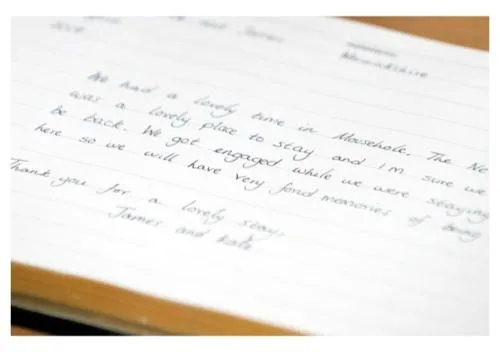 and James
Warwickshire
We had a lovely time in Mousehole. The Ne
was a lovely place to stay and i'm sure we
be back. We got engaged while we were staying
here so we will have very fond memories of being
Thank you for a lovely stay,
James and Kate